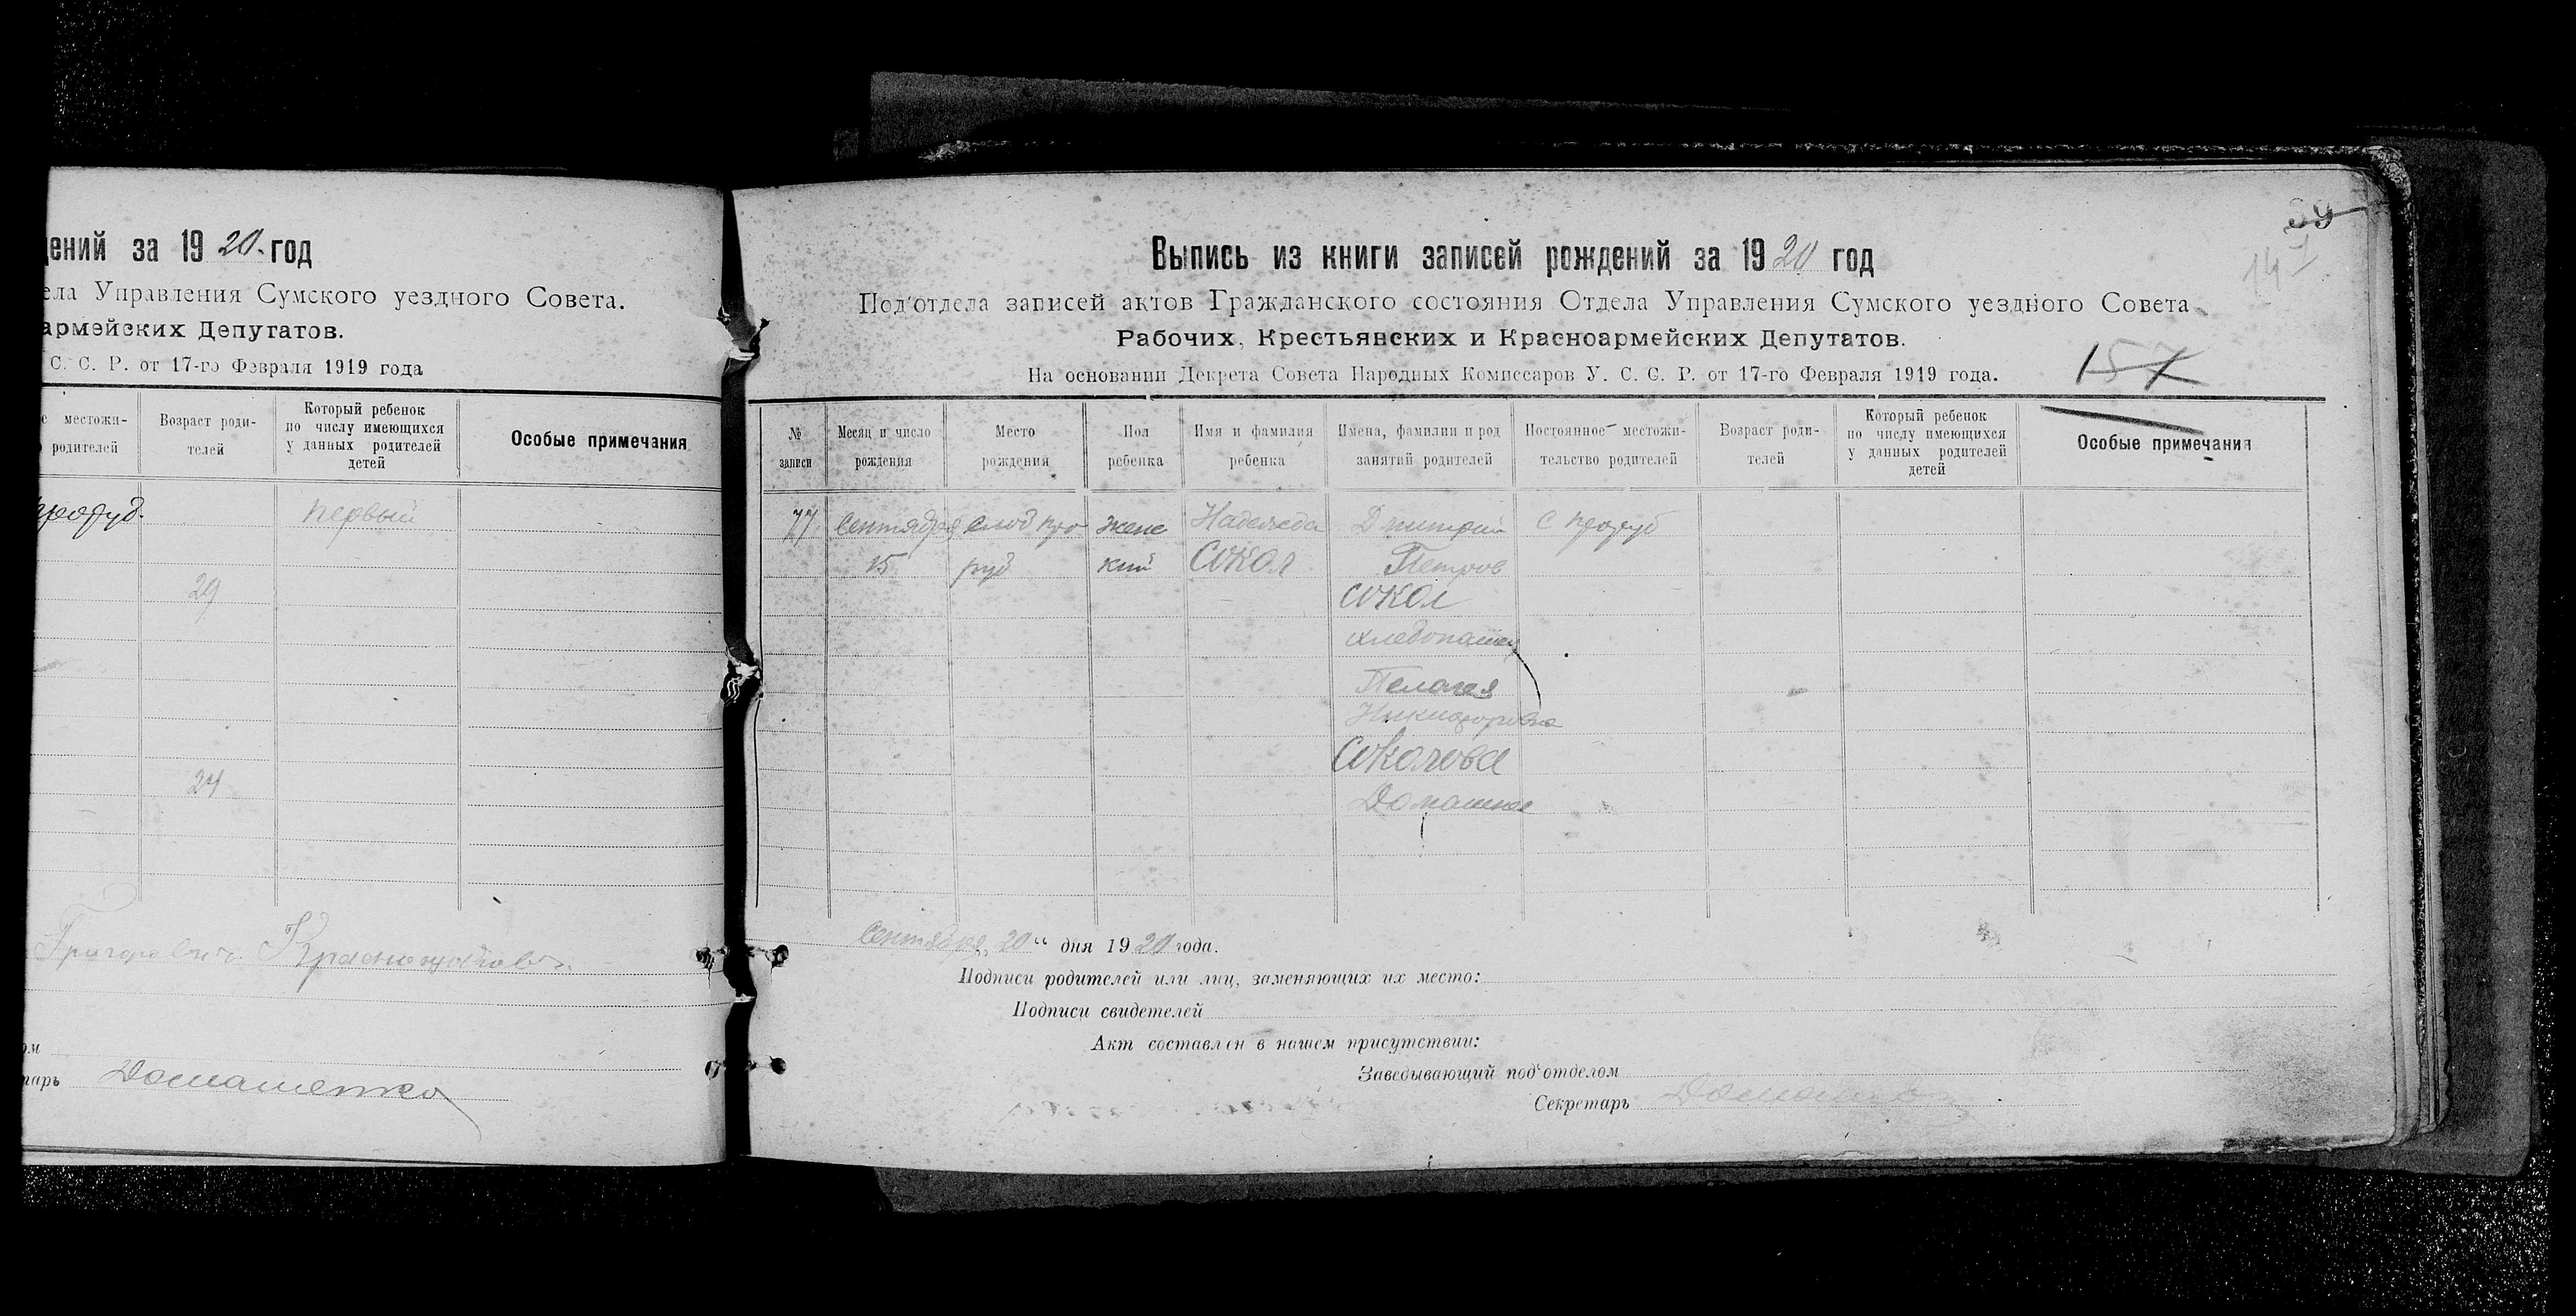 дений за 1920 год
ела Управления Сумского уездного Совета.
армейских Депутатов.
С. С. Р. от 17-го Февраля 1919 года
е местожи-
родителей
Возраст роди-
телей
Который ребенок
по числу имеющихся
у данных родителей
детей
Особые примечания
первый
29
24
Григорович
ом
тарь Домашенко
39
147
Выпись из книги записей рождений за 1920 год
Под'отдела записей актов Гражданского состояния Отдела Управления Сумского уездного Совета
Рабочих, Крестьянских и Красноармейских Депутатов.
На основании Декрета Совета Народных Комиссаров У. С. С. Р. от 17-го Февраля 1919 года.
157
№
записи
Месяц и число
рождения
Место
рождения
Пол
ребенка
Имя и фамилия
ребенка
Имена, фамилии и род
занятий родителей
Постоянное местожи-
тельство родителей
Возраст роди-
телей
Который ребенок
по числу имеющихся
у данных родителей
детей
Особые примечания
77 Сентября слоб про женс Надежда Дмитрий с проруб
15 руб кий Сокол Петров
Сокол
хлебопашец
Пелагея
Никифоровна
Соколова
Домашнее
Сентября „20“ дня 1920 года.
Подписи родителей или лиц, заменяющих их место:
Подписи свидетелей
Акт составлен в нашем присутствии:
Заведывающий под'отделом
Секретарь